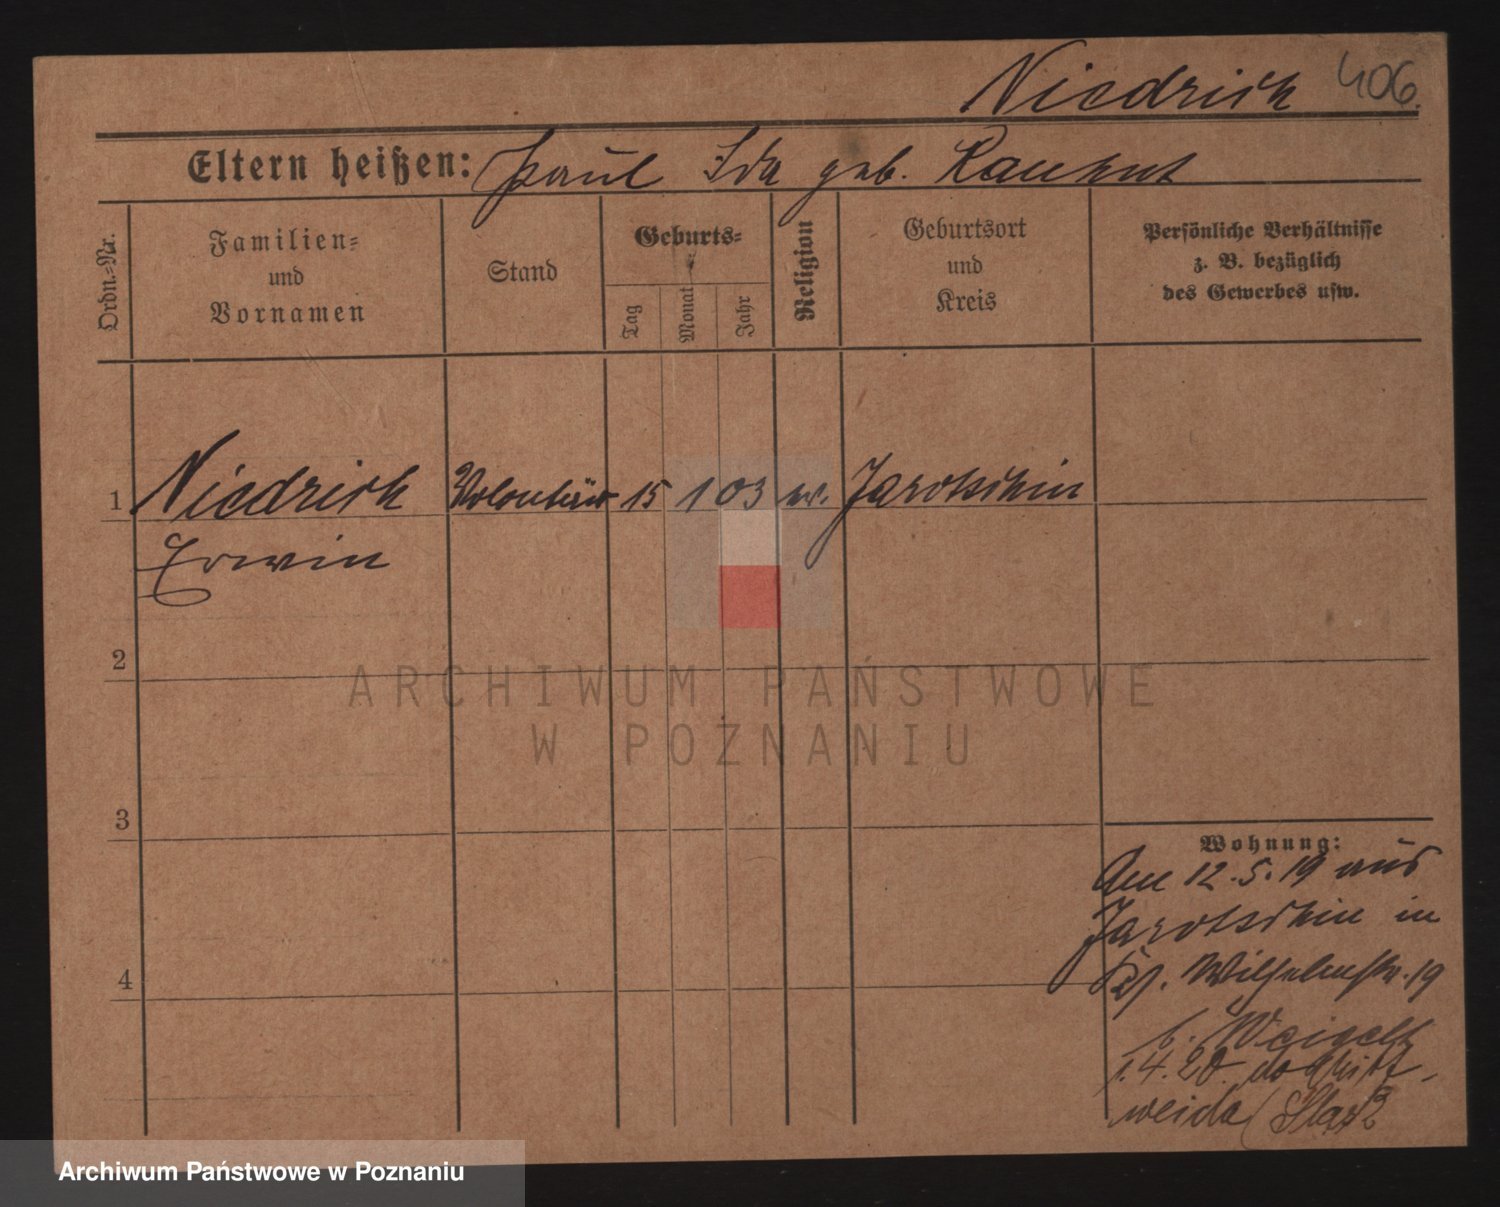 Niedrich 406.
Eltern heißen: Paul Ida geb. Rauhut
Ordn.=Nr.
Familien=
und
Vornamen
Stand
Geburts=
Tag
Monat
Jahr
Religion
Geburtsort
und
Kreis
Persönliche Verhältnisse
z. B. bezüglich
des Gewerbes usw.
1 Niedrich Volontär 15 1 03 ev. Jarotschin
Erwin
2
ARCHIWUM PAŃSTWOWE
W POZNANIU
3
Wohnung:
Am 12.5.19 aus
Jarotschin in
Wilhelmstr. 19
4
b. Weigelt
1.4.20
weida
Archiwum Państwowe w Poznaniu